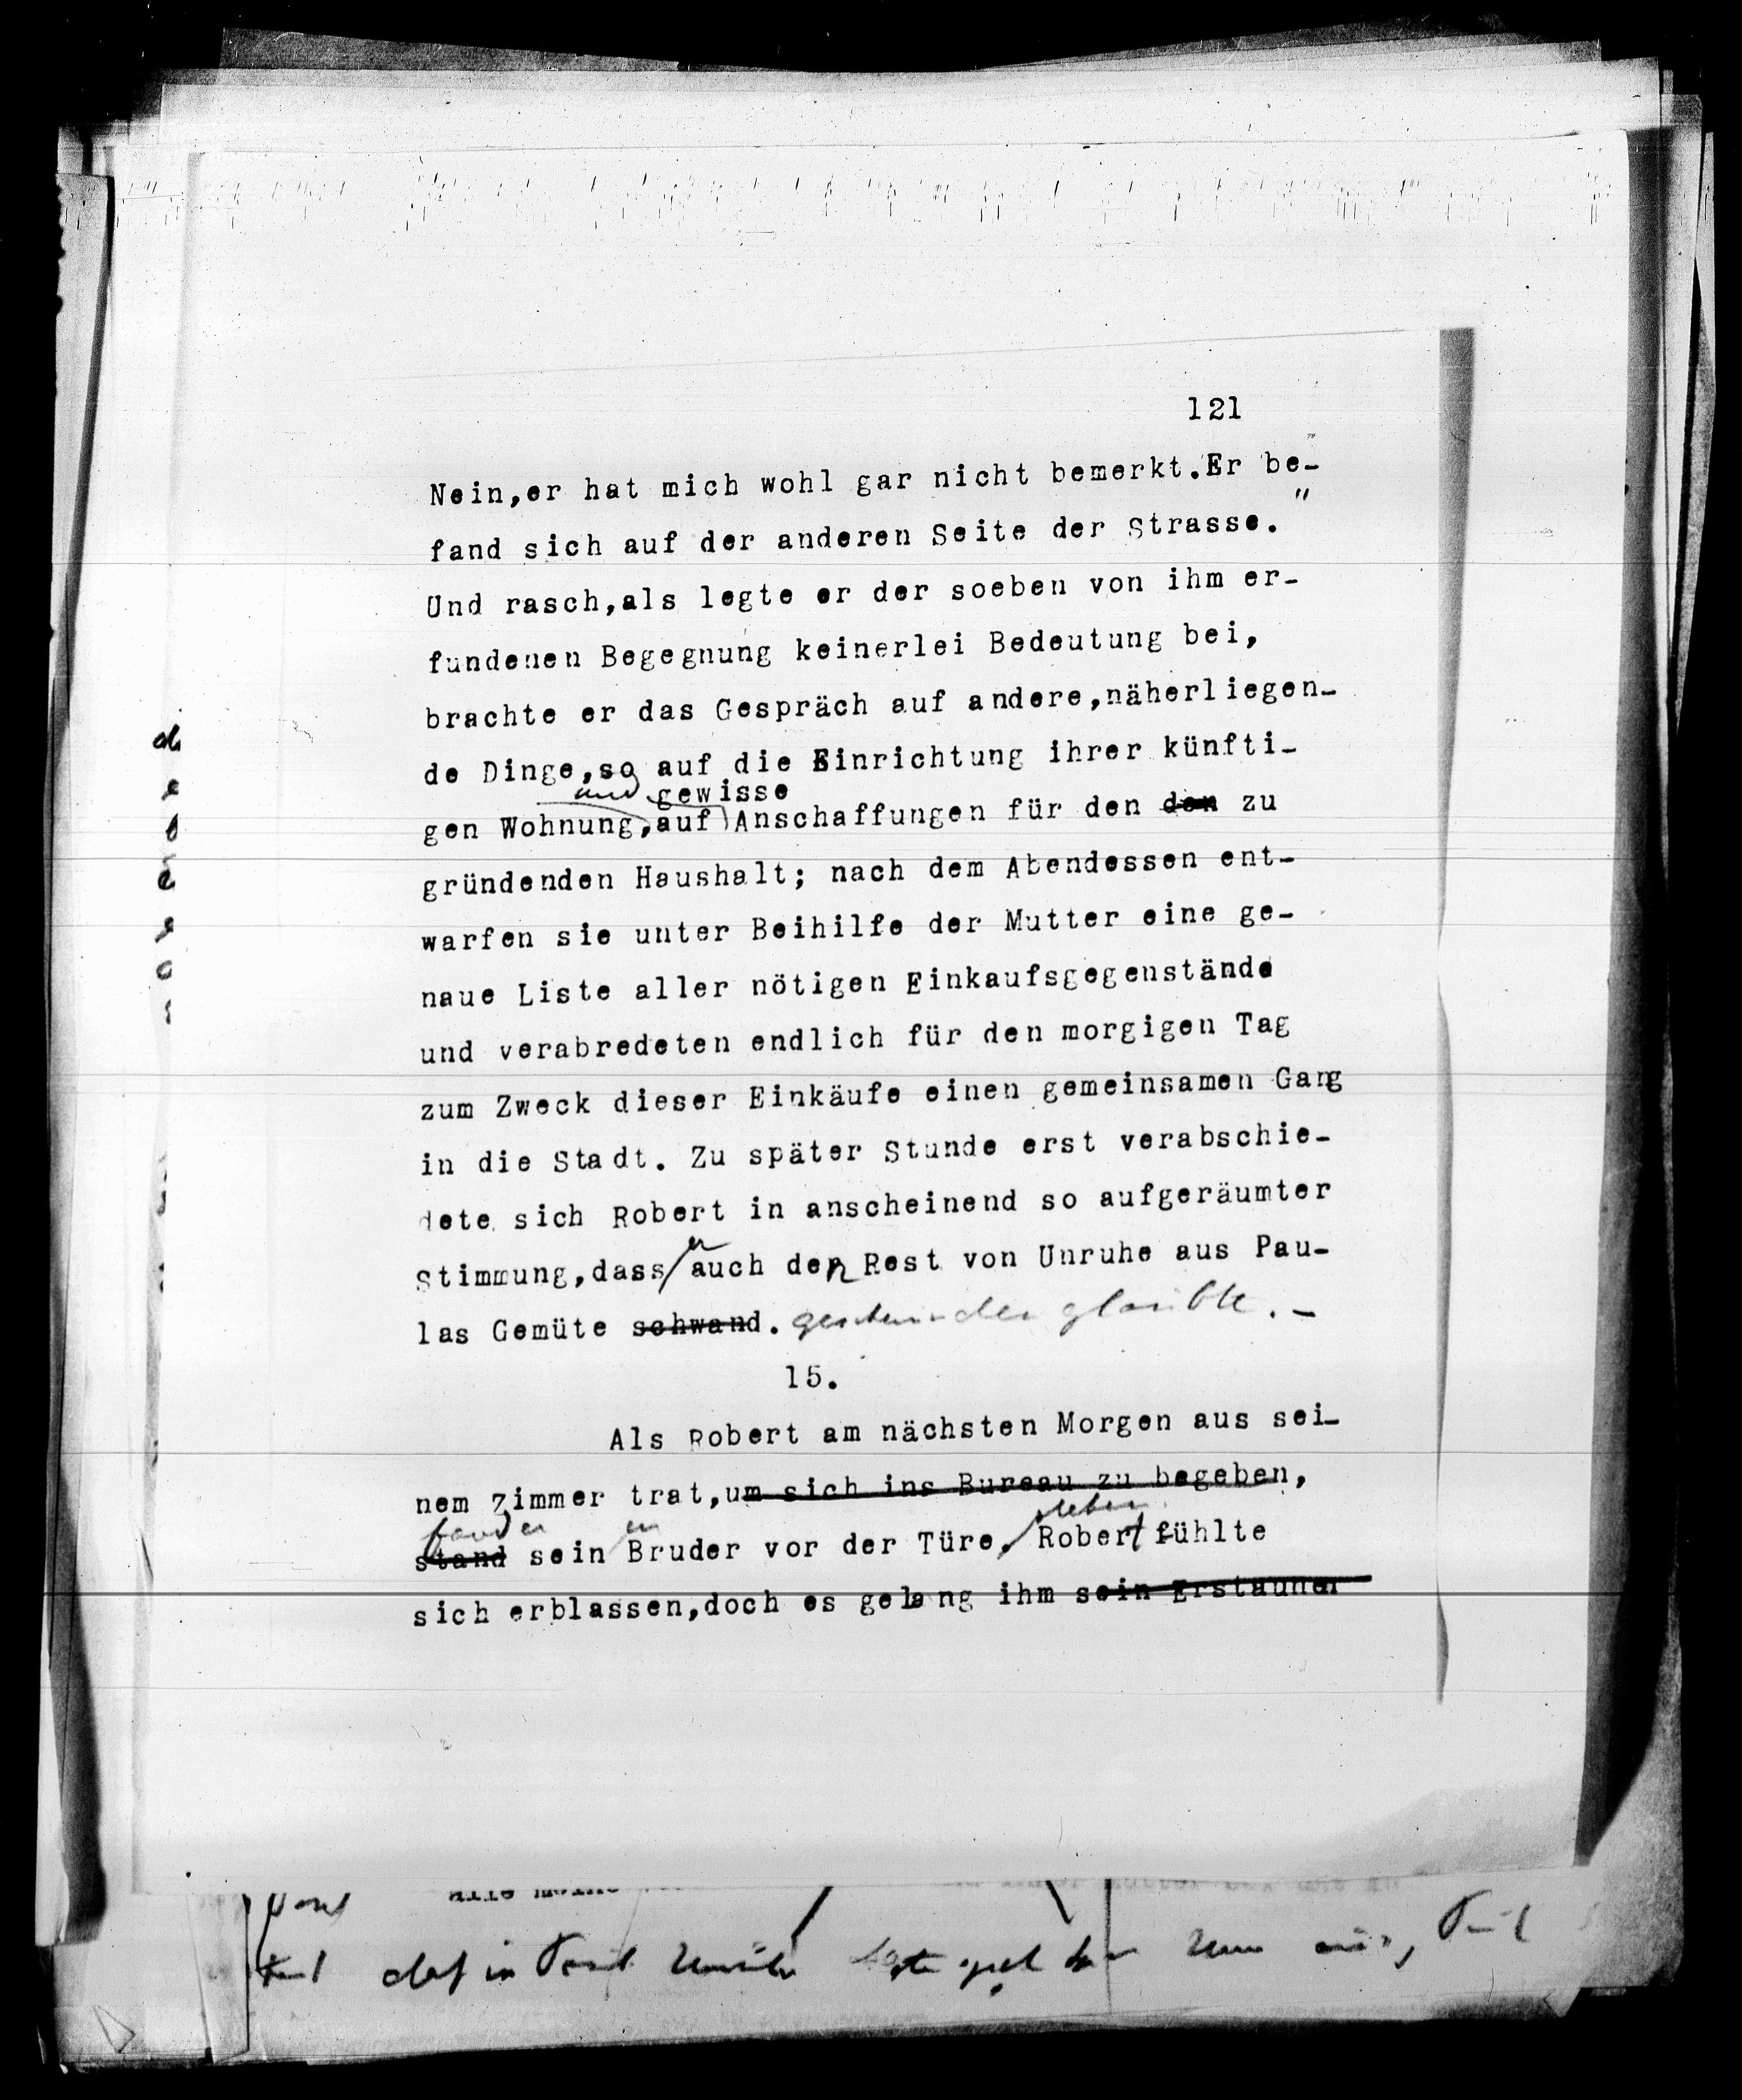 121
Nein,er hat mich wohl gar nicht bemerkt.Er be-
fand sich auf der anderen Seite der Strasse."
Und rasch,als legte er der soeben von ihm er-
fundenen Begegnung keinerlei Bedeutung bei,
brachte er das Gespräch auf andere,näherliegen-
de Dinge,so auf die Einrichtung ihrer künfti-
und gewisse
gen Wohnung,auf Anschaffungen für den den zu
gründenden Haushalt; nach dem Abendessen ent-
warfen sie unter Beihilfe der Mutter eine ge-
naue Liste aller nötigen Einkaufsgegenstände
und verabredeten endlich für den morgigen Tag
zum Zweck dieser Einkäufe einen gemeinsamen Gang
in die Stadt. Zu später Stunde erst verabschie-
dete sich Robert in anscheinend so aufgeräumter
er
Stimmung,dass auch den Rest von Unruhe aus Pau-
las Gemüte schwand. geschwunden glaubte. -
15.
Als Robert am nächsten Morgen aus sei-
nem Zimmer trat,um sich ins Bureau zu begeben,
fand er en stehen
stand sein Bruder vor der Türe. Robert fühlte
sich erblassen,doch es gelang ihm sein Erstaunen